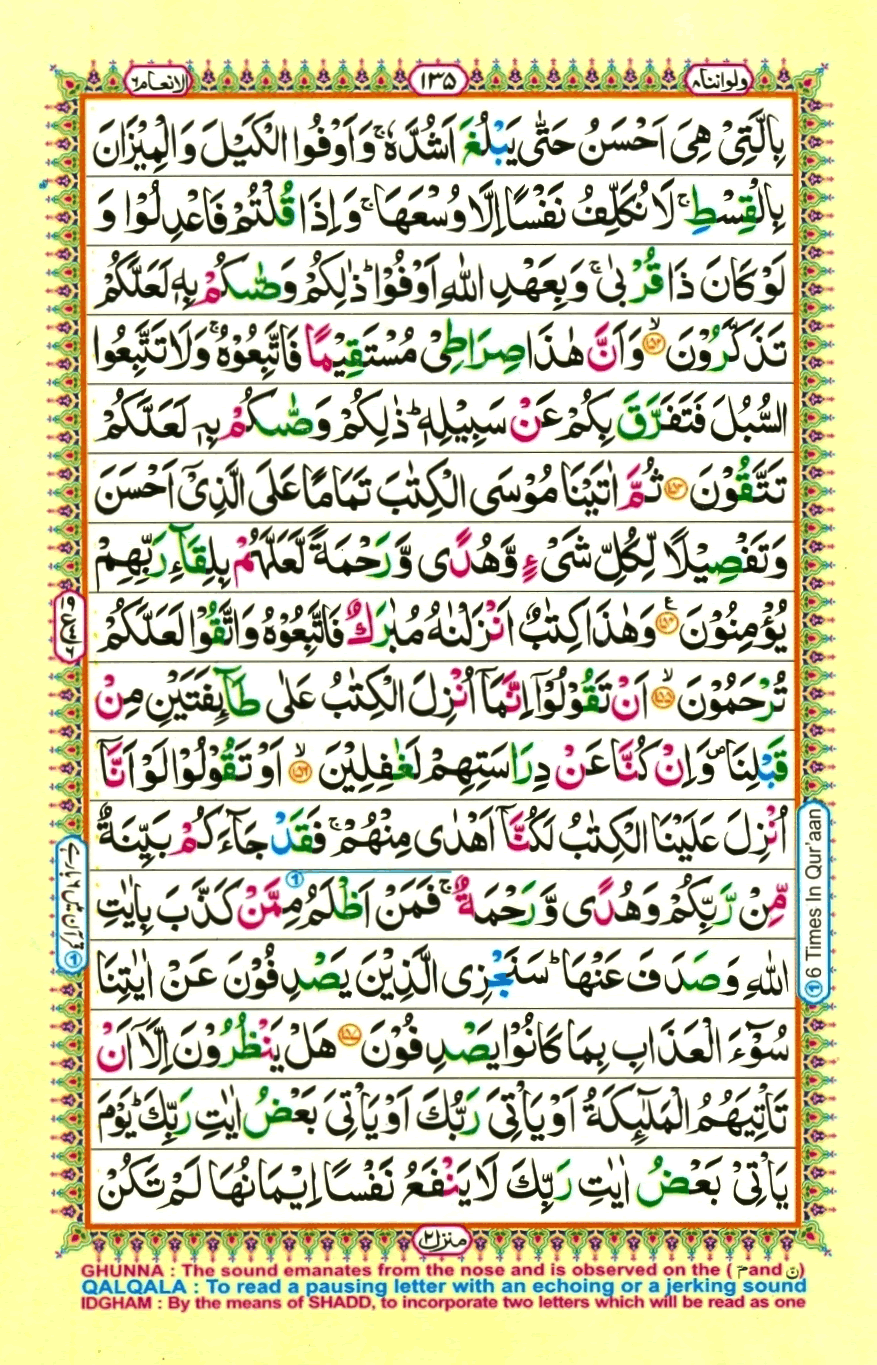 ولواننا۸
۱۳۵
الانعام۶
بِالَّتِیْ هِیَ اَحْسَنُ حَتّٰی یَبْلُغَ اَشُدَّهٗ ۚ وَاَوْفُوا الْكَیْلَ وَالْمِیْزَانَ
بِالْقِسْطِ ۚ لَا نُكَلِّفُ نَفْسًا اِلَّا وُسْعَهَا ۚ وَاِذَا قُلْتُمْ فَاعْدِلُوْا وَ
لَوْ كَانَ ذَا قُرْبٰی ۚ وَبِعَهْدِ اللّٰهِ اَوْفُوْا ؕ ذٰلِكُمْ وَصّٰىكُمْ بِهٖ لَعَلَّكُمْ
تَذَكَّرُوْنَ ۙ﴿۱۵۲﴾ وَاَنَّ هٰذَا صِرَاطِیْ مُسْتَقِیْمًا فَاتَّبِعُوْهُ ۚ وَلَا تَتَّبِعُوا
السُّبُلَ فَتَفَرَّقَ بِكُمْ عَنْ سَبِیْلِهٖ ؕ ذٰلِكُمْ وَصّٰىكُمْ بِهٖ لَعَلَّكُمْ
تَتَّقُوْنَ ﴿۱۵۳﴾ ثُمَّ اٰتَیْنَا مُوْسَی الْكِتٰبَ تَمَامًا عَلَی الَّذِیْۤ اَحْسَنَ
وَتَفْصِیْلًا لِّكُلِّ شَیْءٍ وَّهُدًی وَّرَحْمَةً لَّعَلَّهُمْ بِلِقَآءِ رَبِّهِمْ
یُؤْمِنُوْنَ ﴿۱۵۴﴾ ع وَهٰذَا كِتٰبٌ اَنْزَلْنٰهُ مُبٰرَكٌ فَاتَّبِعُوْهُ وَاتَّقُوْا لَعَلَّكُمْ
تُرْحَمُوْنَ ۙ﴿۱۵۵﴾ اَنْ تَقُوْلُوْۤا اِنَّمَاۤ اُنْزِلَ الْكِتٰبُ عَلٰی طَآىِٕفَتَیْنِ مِنْ
قَبْلِنَا ۪ وَاِنْ كُنَّا عَنْ دِرَاسَتِهِمْ لَغٰفِلِیْنَ ۙ﴿۱۵۶﴾ اَوْ تَقُوْلُوْا لَوْ اَنَّاۤ
اُنْزِلَ عَلَیْنَا الْكِتٰبُ لَكُنَّاۤ اَهْدٰی مِنْهُمْ ۚ فَقَدْ جَآءَكُمْ بَیِّنَةٌ
مِّنْ رَّبِّكُمْ وَهُدًی وَّرَحْمَةٌ ۚ ① فَمَنْ اَظْلَمُ مِمَّنْ كَذَّبَ بِاٰیٰتِ
اللّٰهِ وَصَدَفَ عَنْهَا ؕ سَنَجْزِی الَّذِیْنَ یَصْدِفُوْنَ عَنْ اٰیٰتِنَا
سُوْٓءَ الْعَذَابِ بِمَا كَانُوْا یَصْدِفُوْنَ ﴿۱۵۷﴾ هَلْ یَنْظُرُوْنَ اِلَّاۤ اَنْ
تَاْتِیَهُمُ الْمَلٰٓىِٕكَةُ اَوْ یَاْتِیَ رَبُّكَ اَوْ یَاْتِیَ بَعْضُ اٰیٰتِ رَبِّكَ ؕ یَوْمَ
یَاْتِیْ بَعْضُ اٰیٰتِ رَبِّكَ لَا یَنْفَعُ نَفْسًا اِیْمَانُهَا لَمْ تَكُنْ
① 6 Times In Qur'aan
قرآن میں ۶ بار ہے ①
منزل۲
GHUNNA : The sound emanates from the nose and is observed on the ( مّ and نّ)
QALQALA : To read a pausing letter with an echoing or a jerking sound
IDGHAM : By the means of SHADD, to incorporate two letters which will be read as one